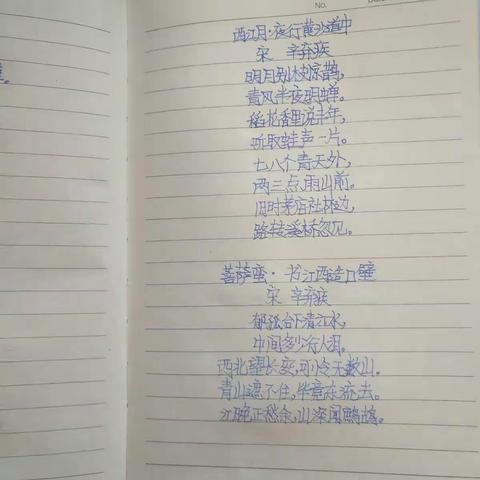 No.
西江月·夜行黄沙道中
宋 辛弃疾
明月别枝惊鹊,
青风半夜明蝉。
稻花香里说丰年,
听取蛙声一片。
七八个青天外,
两三点雨山前。
旧时茅店社林边,
路转溪桥忽见。
菩萨蛮·书江西造口壁
宋 辛弃疾
郁孤台下清江水,
中间多少行人泪。
西北望长安,可怜无数山。
青山遮不住,毕竟东流去。
江晚正愁余,山深闻鹧鸪。